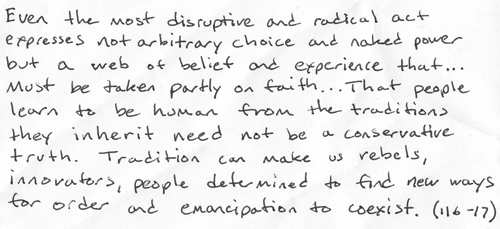 Even the most disruptive and radical act
expresses not arbitrary choice and naked power
but a web of belief and experience that...
Must be taken partly on faith...That people
learn to be human from the traditions
they inherit need not be a conservative
truth. Tradition can make us rebels,
innovators, people determined to find new ways
for order and emancipation to coexist. (116-17)